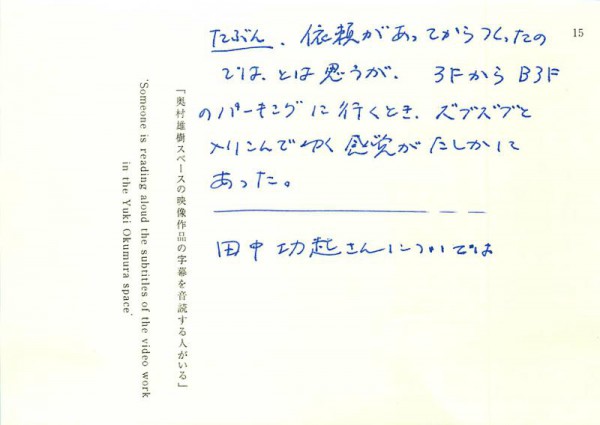 15
たぶん、依頼があってからつくったの
では、とは思うが、3FからB3F
のパーキングに行くとき、ズブズブと
入りこんでゆく感覚がたしかに
あった。
田中功起さんについては
「奥村雄樹スペースの映像作品の字幕を音読する人がいる」
'Someone is reading aloud the subtitles of the video work
in the Yuki Okumura space'